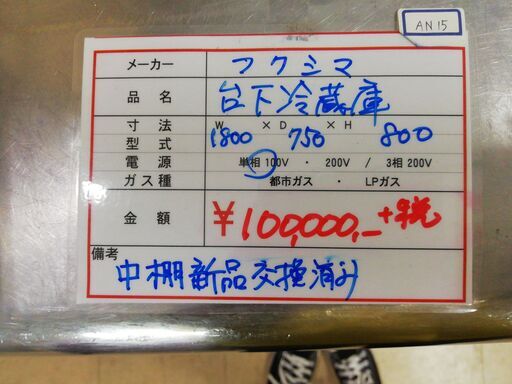 AN15
メーカー フクシマ
品名 台下冷蔵庫
寸法 W ×D ×H
型式 1800 750 800
電源 単相100V ・ 200V / 3相200V
ガス種 都市ガス ・ LPガス
金額 ¥100,000,- +税
備考
中棚新品交換済み